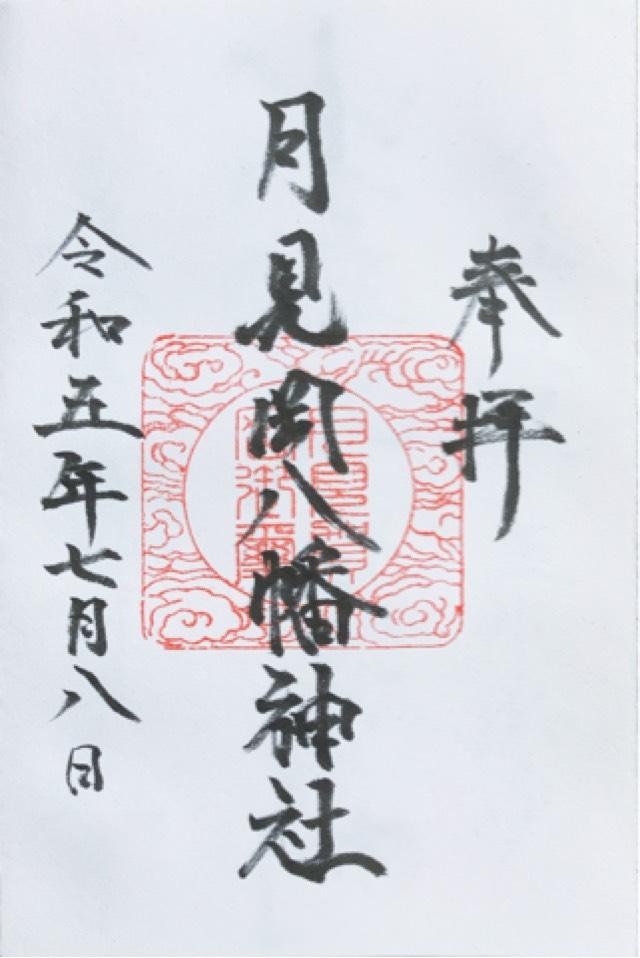 奉拝
月見岡八幡神社
令和五年七月八日